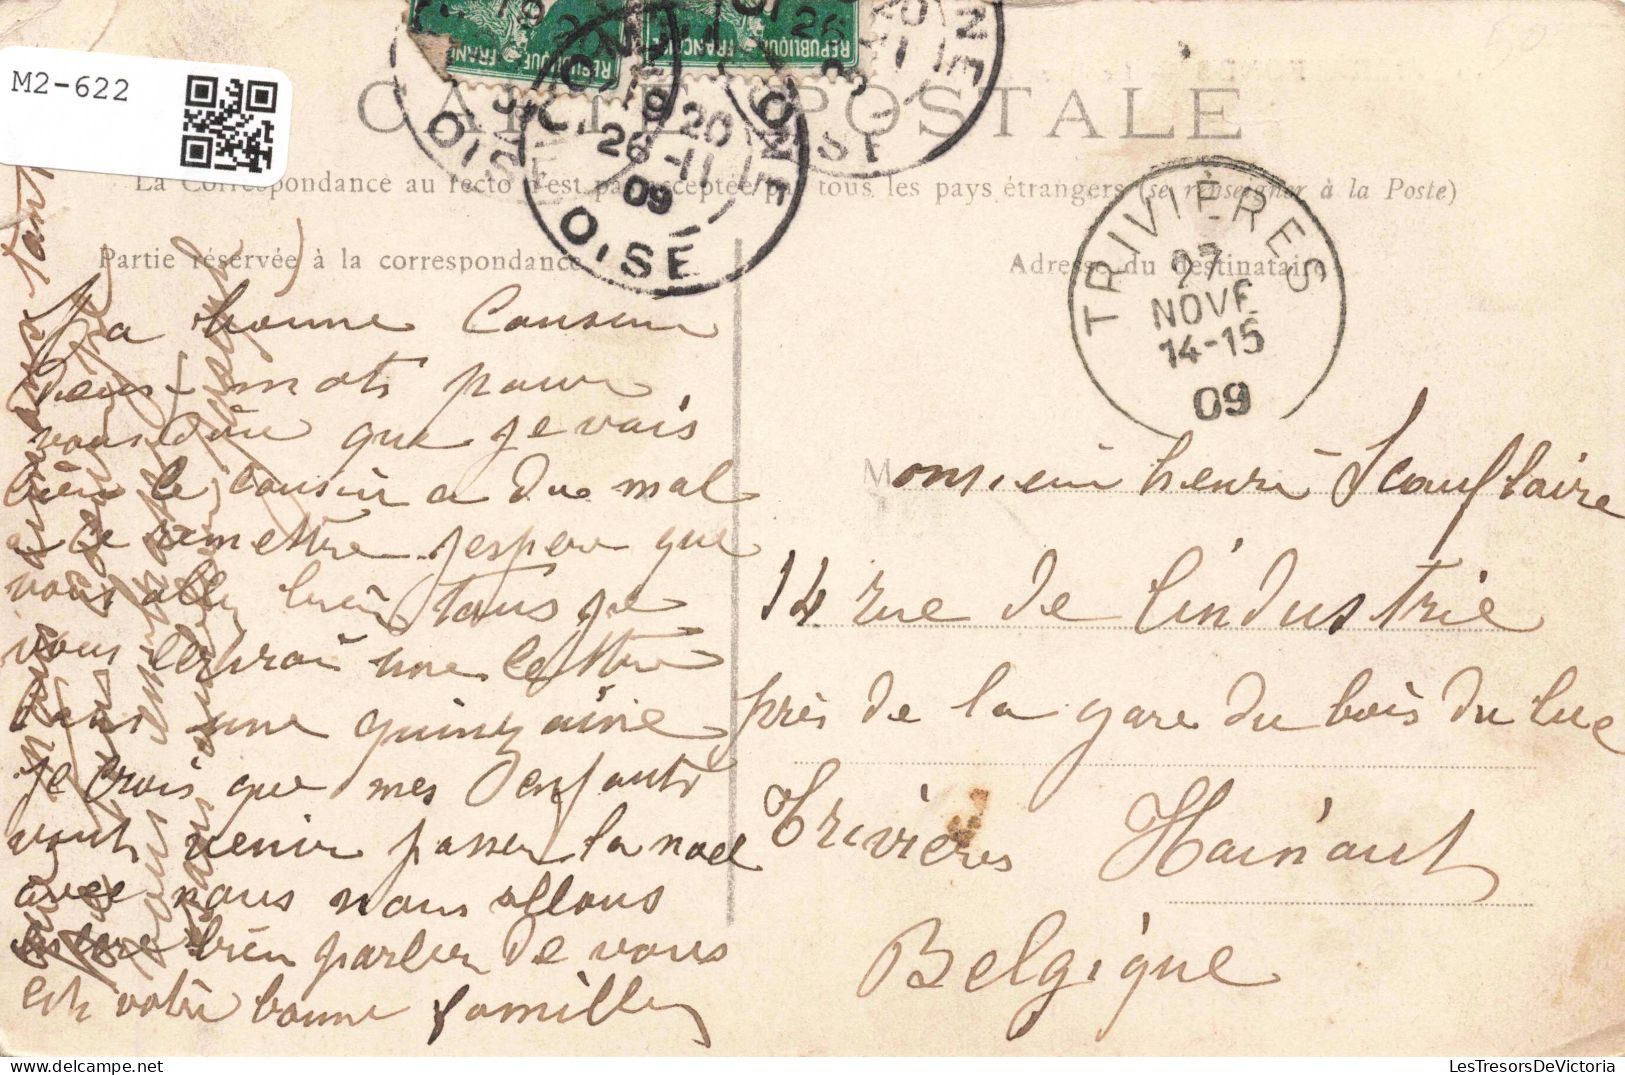 M2-622
RÉPUBLIQUE FRANÇAISE
RÉPUBLIQUE FRANÇAISE
CARTE POSTALE
La Correspondance au recto n'est pas acceptée par tous les pays étrangers (se renseigner à la Poste)
Partie réservée à la correspondance
Adresse du destinataire
20
26-11
09
OISE
OISE
TRIVIÈRES
27
NOVE
14-15
09
Ma bonne Cousine
deux mots pour
vous dire que je vais
bien le cousin a du mal
a ce remettre jespere que
vous alley bien tous je
vous écrirai une lettre
dans une quinzaine
je crois que mes enfants
vont venir passer la noel
avec nous nous allons
bien parler de vous
est votre bonne famille
Monsieur henri Scauflaire
14 rue de l'industrie
près de la gare du bois du luc
Trivières Hainaut
Belgique
LesTresorsDeVictoria.com